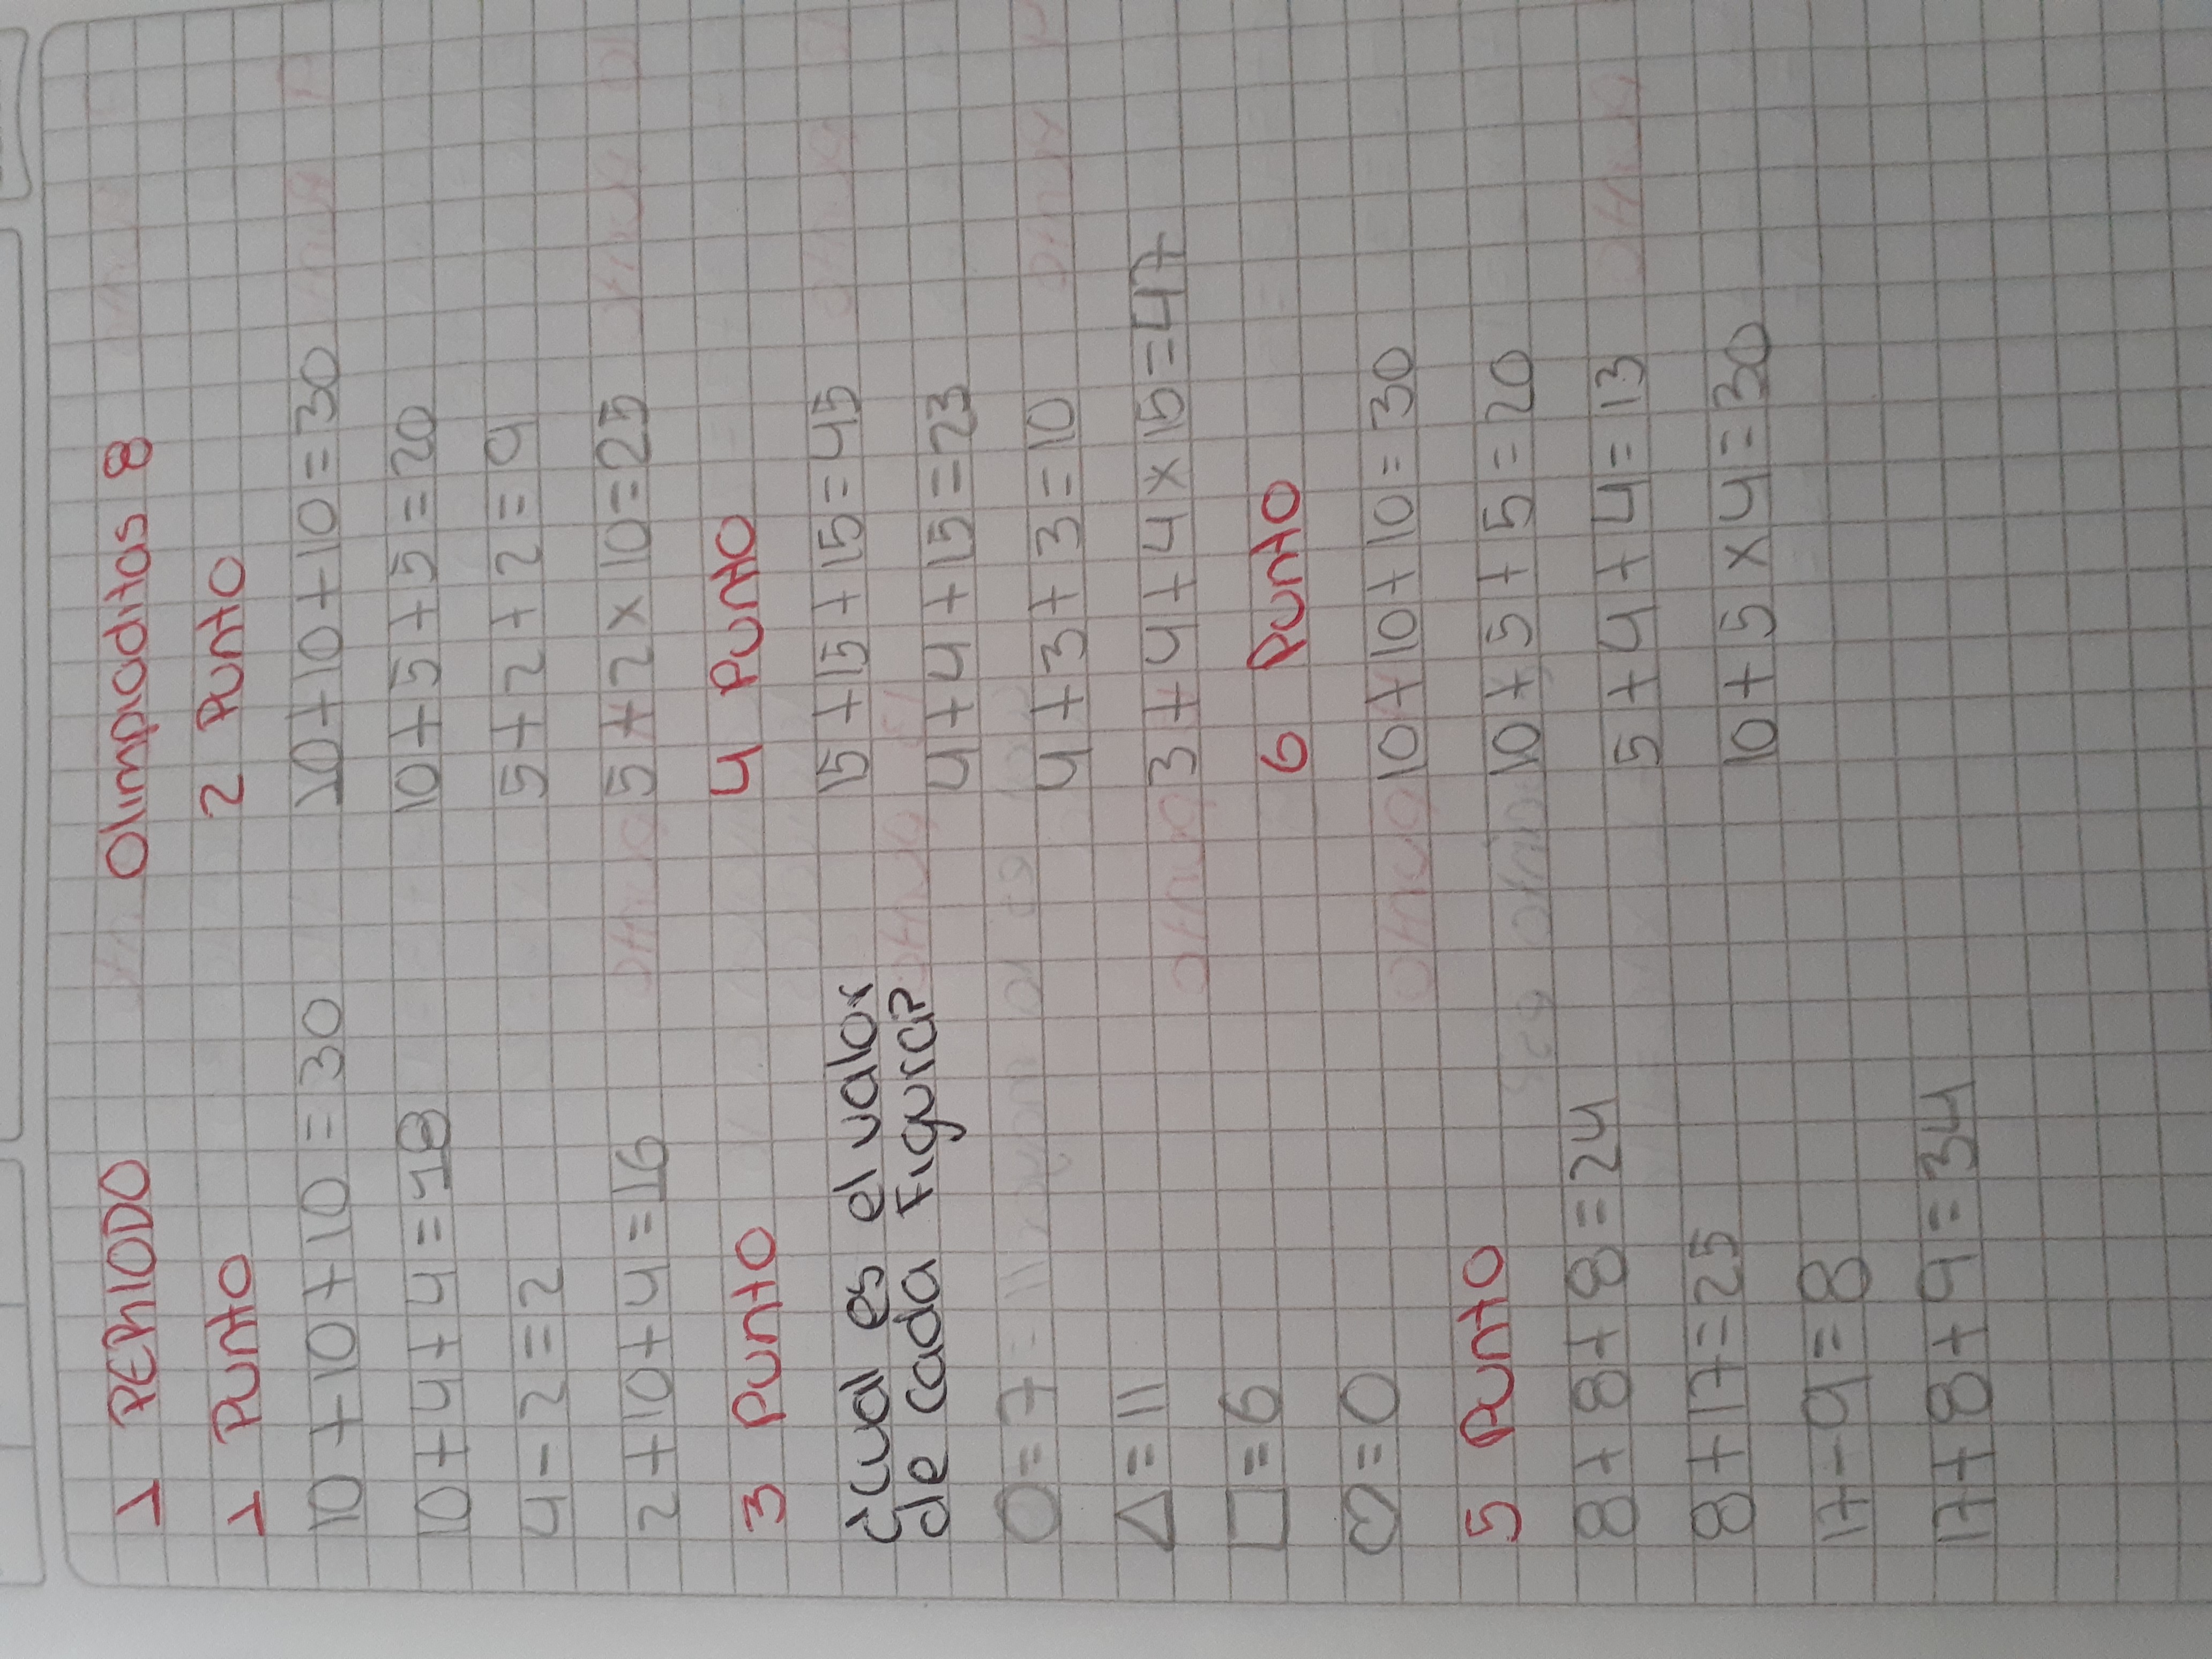 1 PERIODO Olimpiaditas 8
1 Punto
10 + 10 + 10 = 30
10 + 4 + 4 = 18
4 - 2 = 2
2 + 10 + 4 = 16
3 Punto
¿Cual es el valor
de cada Figura?
○ = 7
△ = 11
□ = 6
♡ = 0
5 Punto
8 + 8 + 8 = 24
8 + 17 = 25
17 - 9 = 8
17 + 8 + 9 = 34
2 Punto
10 + 10 + 10 = 30
10 + 5 + 5 = 20
5 + 2 + 2 = 9
5 + 2 x 10 = 25
4 Punto
15 + 15 + 15 = 45
4 + 4 + 15 = 23
4 + 3 + 3 = 10
3 + 4 + 4 x 15 = 47
6 Punto
10 + 10 + 10 = 30
10 + 5 + 5 = 20
5 + 4 + 4 = 13
10 + 5 x 4 = 30